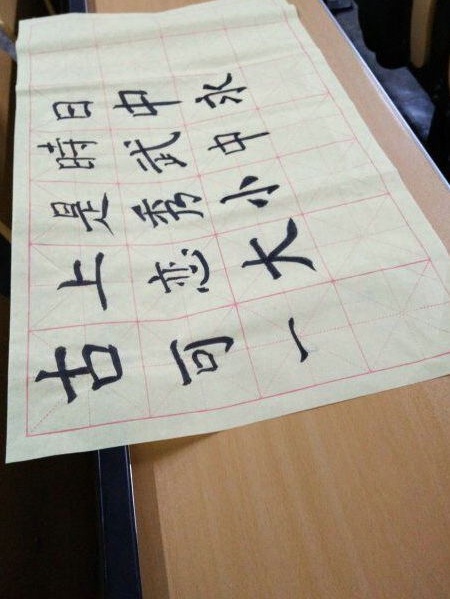 水中小大一
中武秀恋可
日時是上古